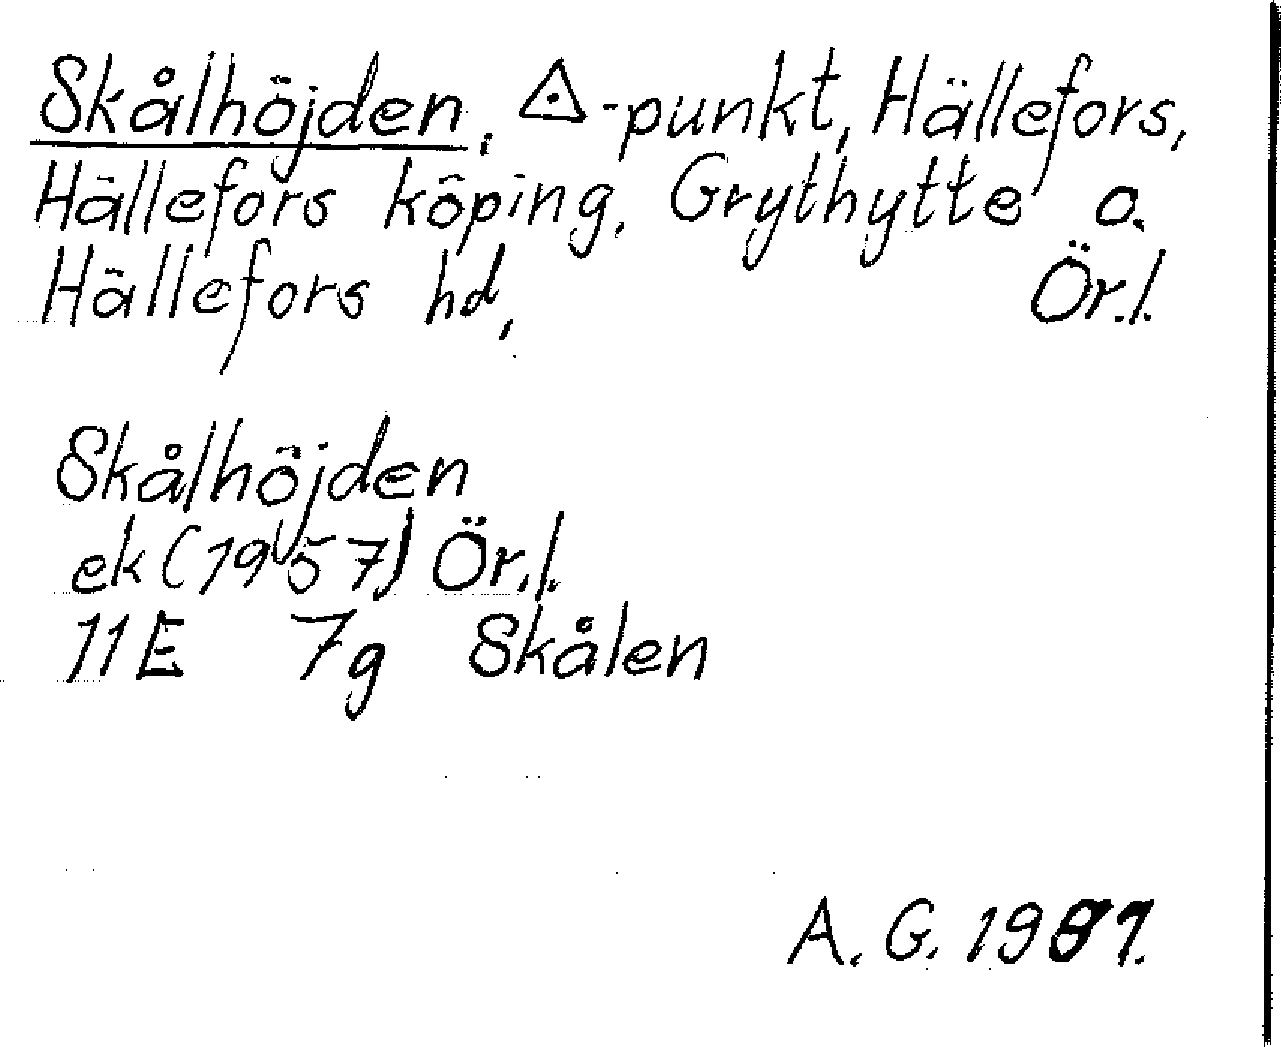 Skålhöjden, ◬-punkt, Hällefors,
Hällefors köping, Grythytte o.
Hällefors hd, Ör.l.
Skålhöjden
ek (1957) Ör.l.
11E 7g Skålen
A. G. 1981.